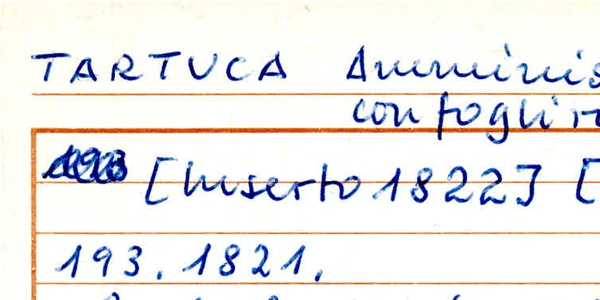 TARTUCA Amminis
con fogli
193 [Inserto 1822] [
193. 1821.